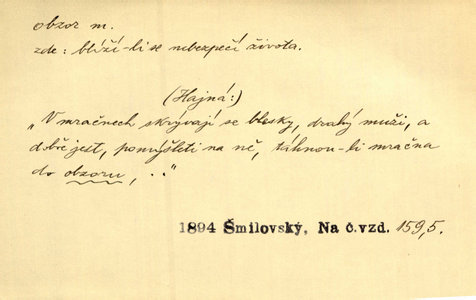 obzor m.
zde: blíží-li se nebezpečí života.
(Hajná:)
„V mračnech skrývají se blesky, drahý muži, a
dobře jest, pomýšleti na ně, táhnou-li mračna
do obzoru, .."
1894 Šmilovský, Na č.vzd. 159,5.